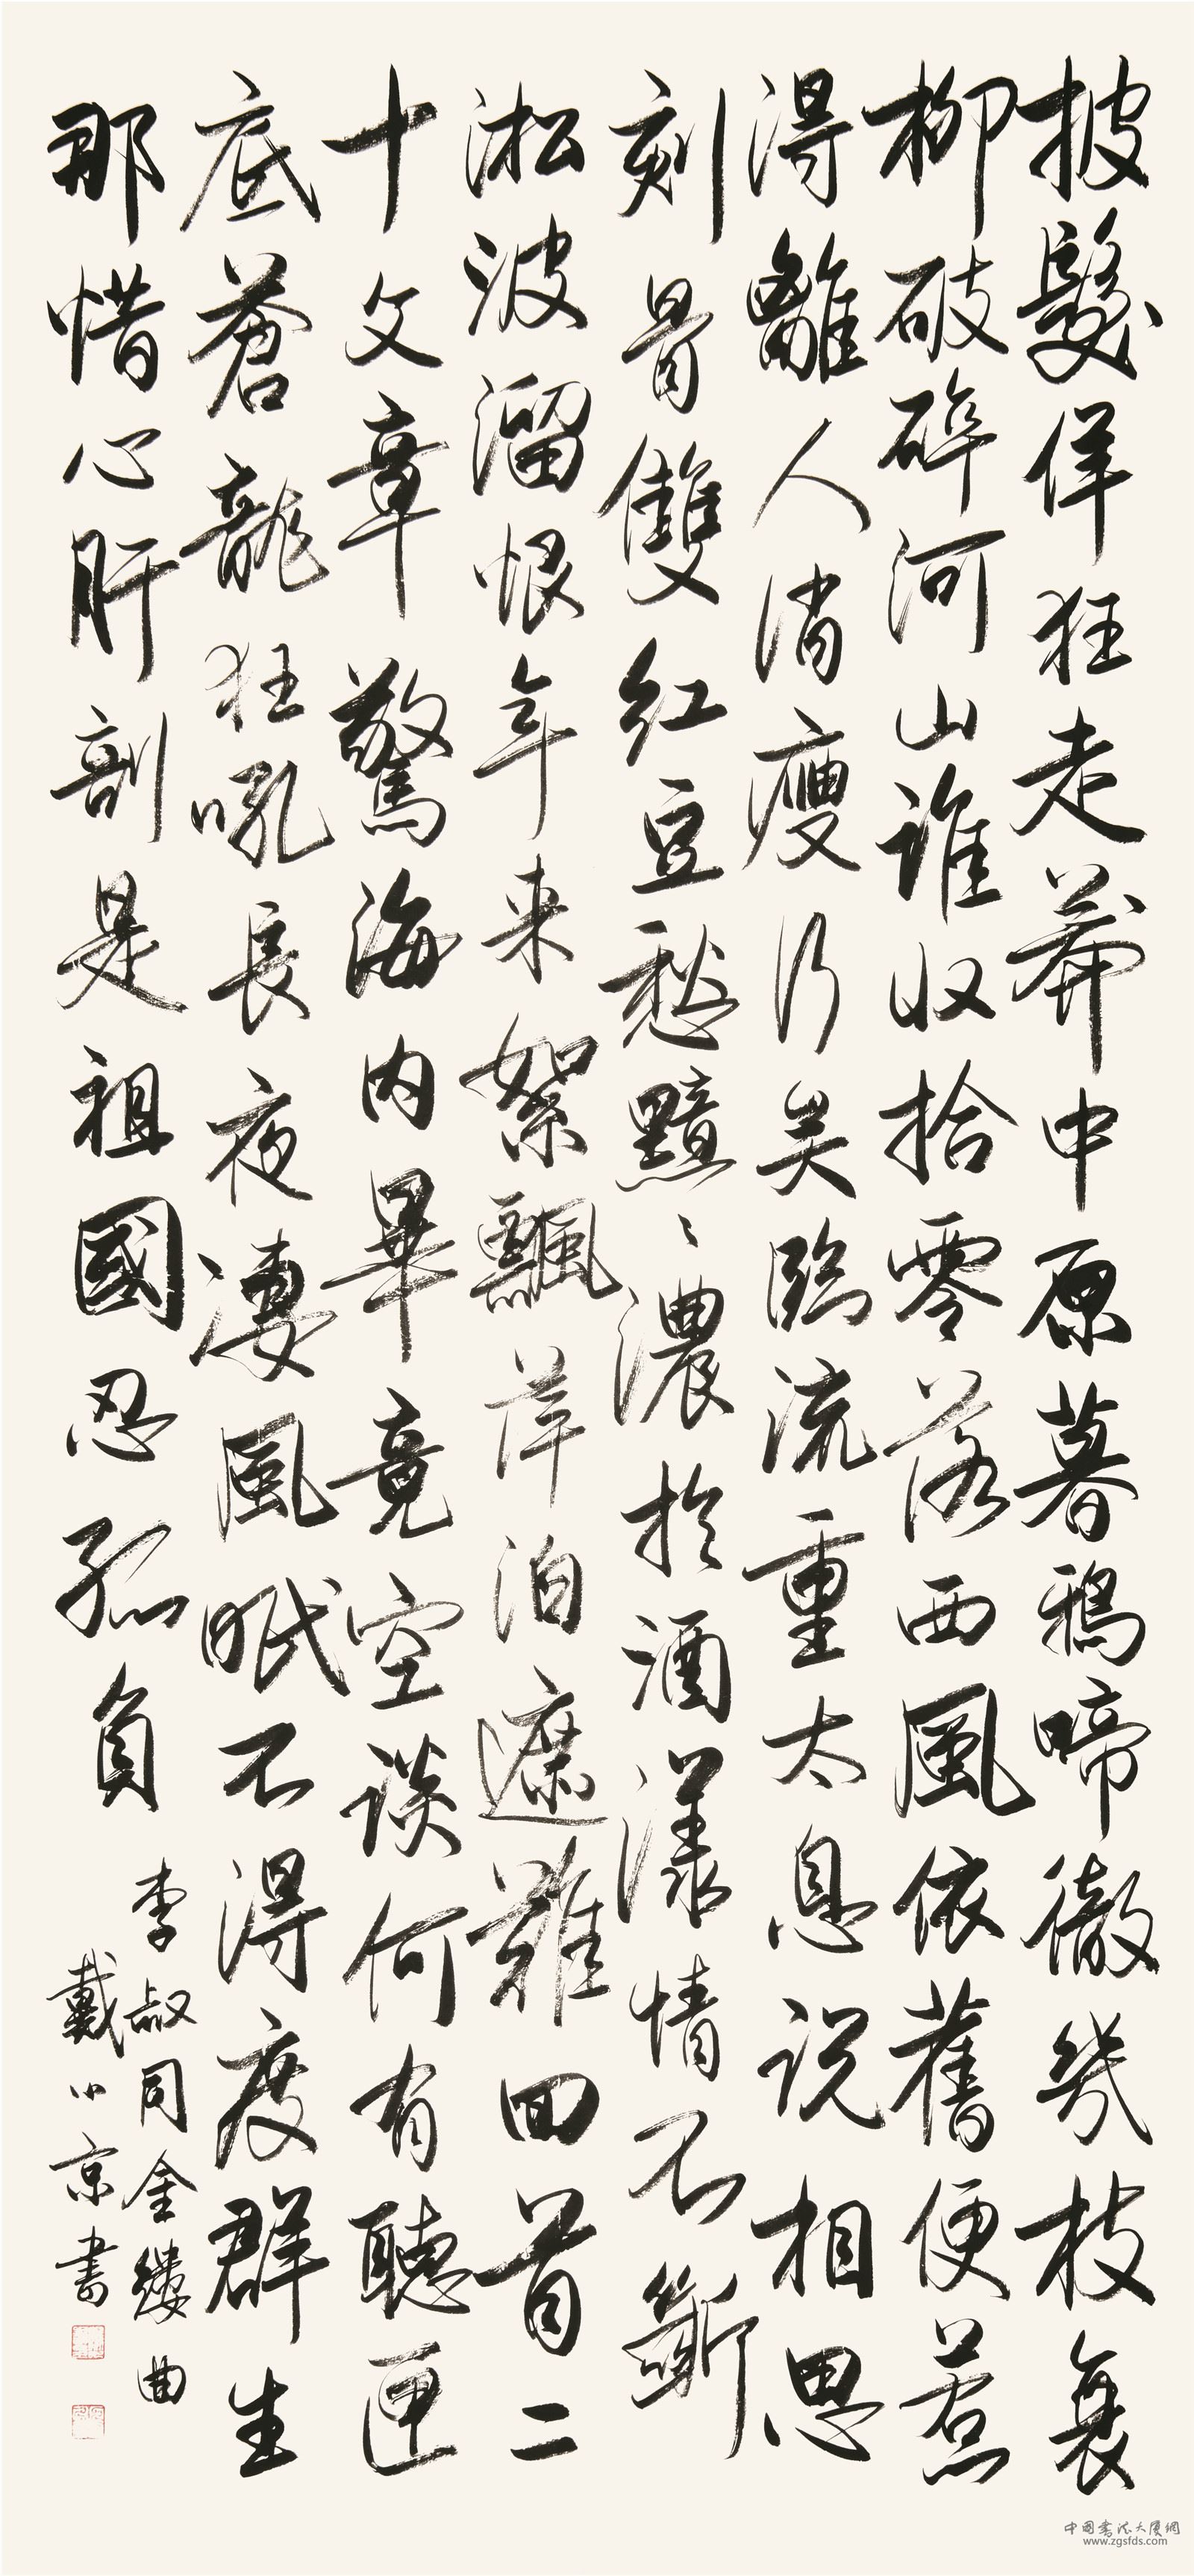 披髮佯狂走莽中原暮鴉啼徹幾枝衰
柳破碎河山誰收拾零落西風依舊便惹
得離人消瘦行矣臨流重太息說相思
刻骨雙紅豆愁黯黯濃於酒漾情不斷
淞波溜恨年来絮飄萍泊遮難回首二
十文章驚海內畢竟空談何有聽匣
底蒼龍狂吼長夜淒風眠不得度群生
那惜心肝剖是祖國忍孤負
李叔同金縷曲
戴小京書
中国书法大厦網
www.zgsfds.com